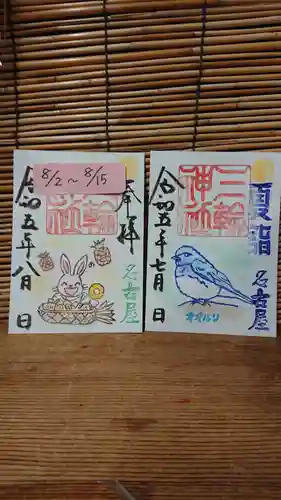 8/2～8/15
奉拝
名古屋
輪
社
令和五年八月 日
夏詣
名古屋
三輪
神社
令和五年七月 日
オオルリ